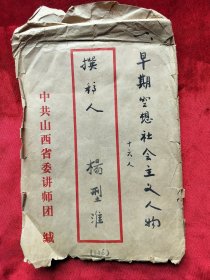 早期空想社会主义人物
十六人
撰稿人
杨型淮
中共山西省委讲师团 缄